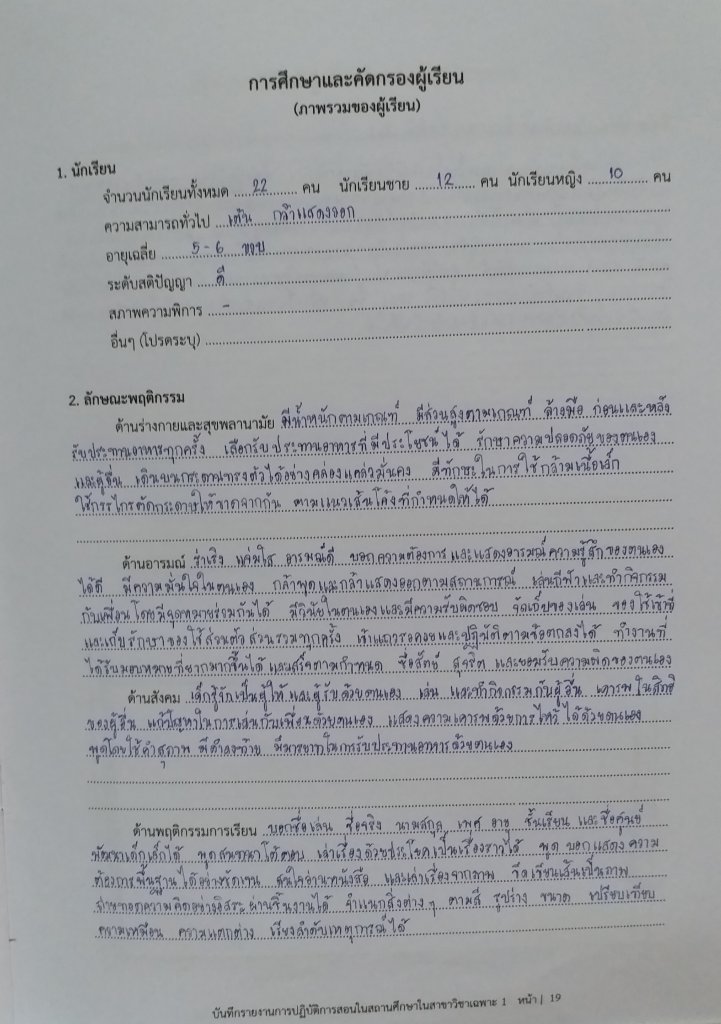 การศึกษาและคัดกรองผู้เรียน
(ภาพรวมของผู้เรียน)
1. นักเรียน
จำนวนนักเรียนทั้งหมด 22 คน นักเรียนชาย 12 คน นักเรียนหญิง 10 คน
ความสามารถทั่วไป เต้น กล้าแสดงออก
อายุเฉลี่ย 5-6 ขวบ
ระดับสติปัญญา ดี
สภาพความพิการ -
อื่นๆ (โปรดระบุ)
2. ลักษณะพฤติกรรม
ด้านร่างกายและสุขพลานามัย มีน้ำหนักตามเกณฑ์ มีส่วนสูงตามเกณฑ์ ล้างมือ ก่อนและหลัง
รับประทานอาหารทุกครั้ง เลือกรับประทานอาหารที่มีประโยชน์ได้ รักษาความปลอดภัยของตนเอง
และผู้อื่น เดินบนกระดานทรงตัวได้อย่างคล่องแคล่วมั่นคง มีทักษะในการใช้กล้ามเนื้อเล็ก
ใช้กรรไกรตัดกระดาษให้ขาดจากกัน ตามแนวเส้นโค้งที่กำหนดให้ได้
ด้านอารมณ์ ร่าเริง แจ่มใส อารมณ์ดี บอกความต้องการและแสดงอารมณ์ความรู้สึกของตนเอง
ได้ดี มีความมั่นใจในตนเอง กล้าพูดและกล้าแสดงออกตามสถานการณ์ เล่นกีฬาและทำกิจกรรม
กับเพื่อนโดยมีจุดหมายร่วมกันได้ มีวินัยในตนเองและมีความรับผิดชอบ จัดเก็บของเล่น ของใช้เข้าที่
และเก็บรักษาของใช้ส่วนตัวส่วนรวมทุกครั้ง เข้าแถวรอคอยและปฏิบัติตามข้อตกลงได้ ทำงานที่
ได้รับมอบหมายที่ยากมากขึ้นได้และสำเร็จตามกำหนด ซื่อสัตย์ สุจริต และยอมรับความผิดของตนเอง
ด้านสังคม เด็กรู้จักเป็นผู้ให้และผู้รับด้วยตนเอง เล่น และทำกิจกรรมกับผู้อื่น เคารพในสิทธิ
ของผู้อื่น แก้ปัญหาในการเล่นกับเพื่อนด้วยตนเอง แสดงความเคารพด้วยการไหว้ได้ด้วยตนเอง
พูดโดยใช้คำสุภาพ มีคำลงท้าย มีมารยาทในการรับประทานอาหารด้วยตนเอง
ด้านพฤติกรรมการเรียน บอกชื่อเล่น ชื่อจริง นามสกุล เพศ อายุ ชั้นเรียน และชื่อศูนย์
พัฒนาเด็กเล็กได้ พูดสนทนาโต้ตอบ เล่าเรื่องด้วยประโยคเป็นเรื่องราวได้ พูด บอกแสดงความ
ต้องการพื้นฐานได้อย่างชัดเจน สนใจอ่านหนังสือ และเล่าเรื่องจากภาพ ขีดเขียนเส้นเป็นภาพ
ถ่ายทอดความคิดอย่างอิสระผ่านชิ้นงานได้ จำแนกสิ่งต่างๆ ตามสี รูปร่าง ขนาด เปรียบเทียบ
ความเหมือน ความแตกต่าง เรียงลำดับเหตุการณ์ได้
บันทึกรายงานการปฏิบัติการสอนในสถานศึกษาในสาขาวิชาเฉพาะ 1 หน้า | 19